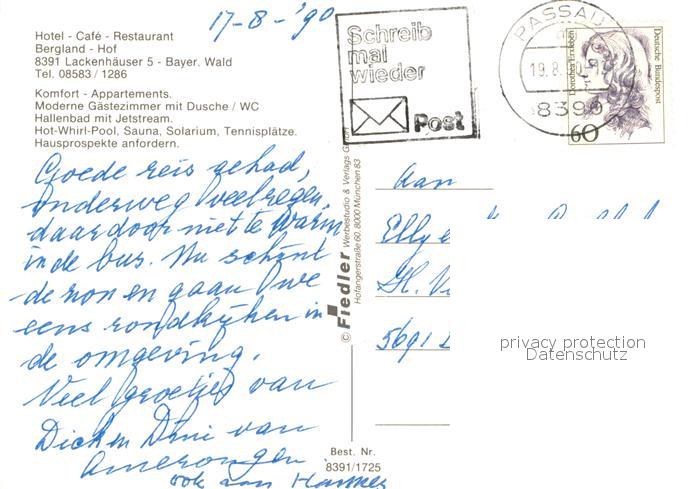 17-8-'90
Hotel - Café - Restaurant
Bergland - Hof
8391 Lackenhäuser 5 - Bayer. Wald
Tel. 08583 / 1286
Komfort - Appartements.
Moderne Gästezimmer mit Dusche / WC
Hallenbad mit Jetstream.
Hot-Whirl-Pool, Sauna, Solarium, Tennisplätze.
Hausprospekte anfordern.
Goede reis gehad,
onderweg veel regen,
daardoor niet te warm
in de bus. Nu schijnt
de zon en gaan we
eens rondkijken in
de omgeving.
Veel groetjes van
Dick en Dini van
Amerongen
ook aan Hannes
Schreib
mal
wieder
Post
PASSAU
19.8.
8390
Dorothea Erxleben
Deutsche Bundespost
60
© Fiedler Werbestudio & Verlags GmbH
Hofangerstraße 60, 8000 München 83
Aan
Ellye
St. Vi
5691
privacy protection
Datenschutz
Best. Nr.
8391/1725